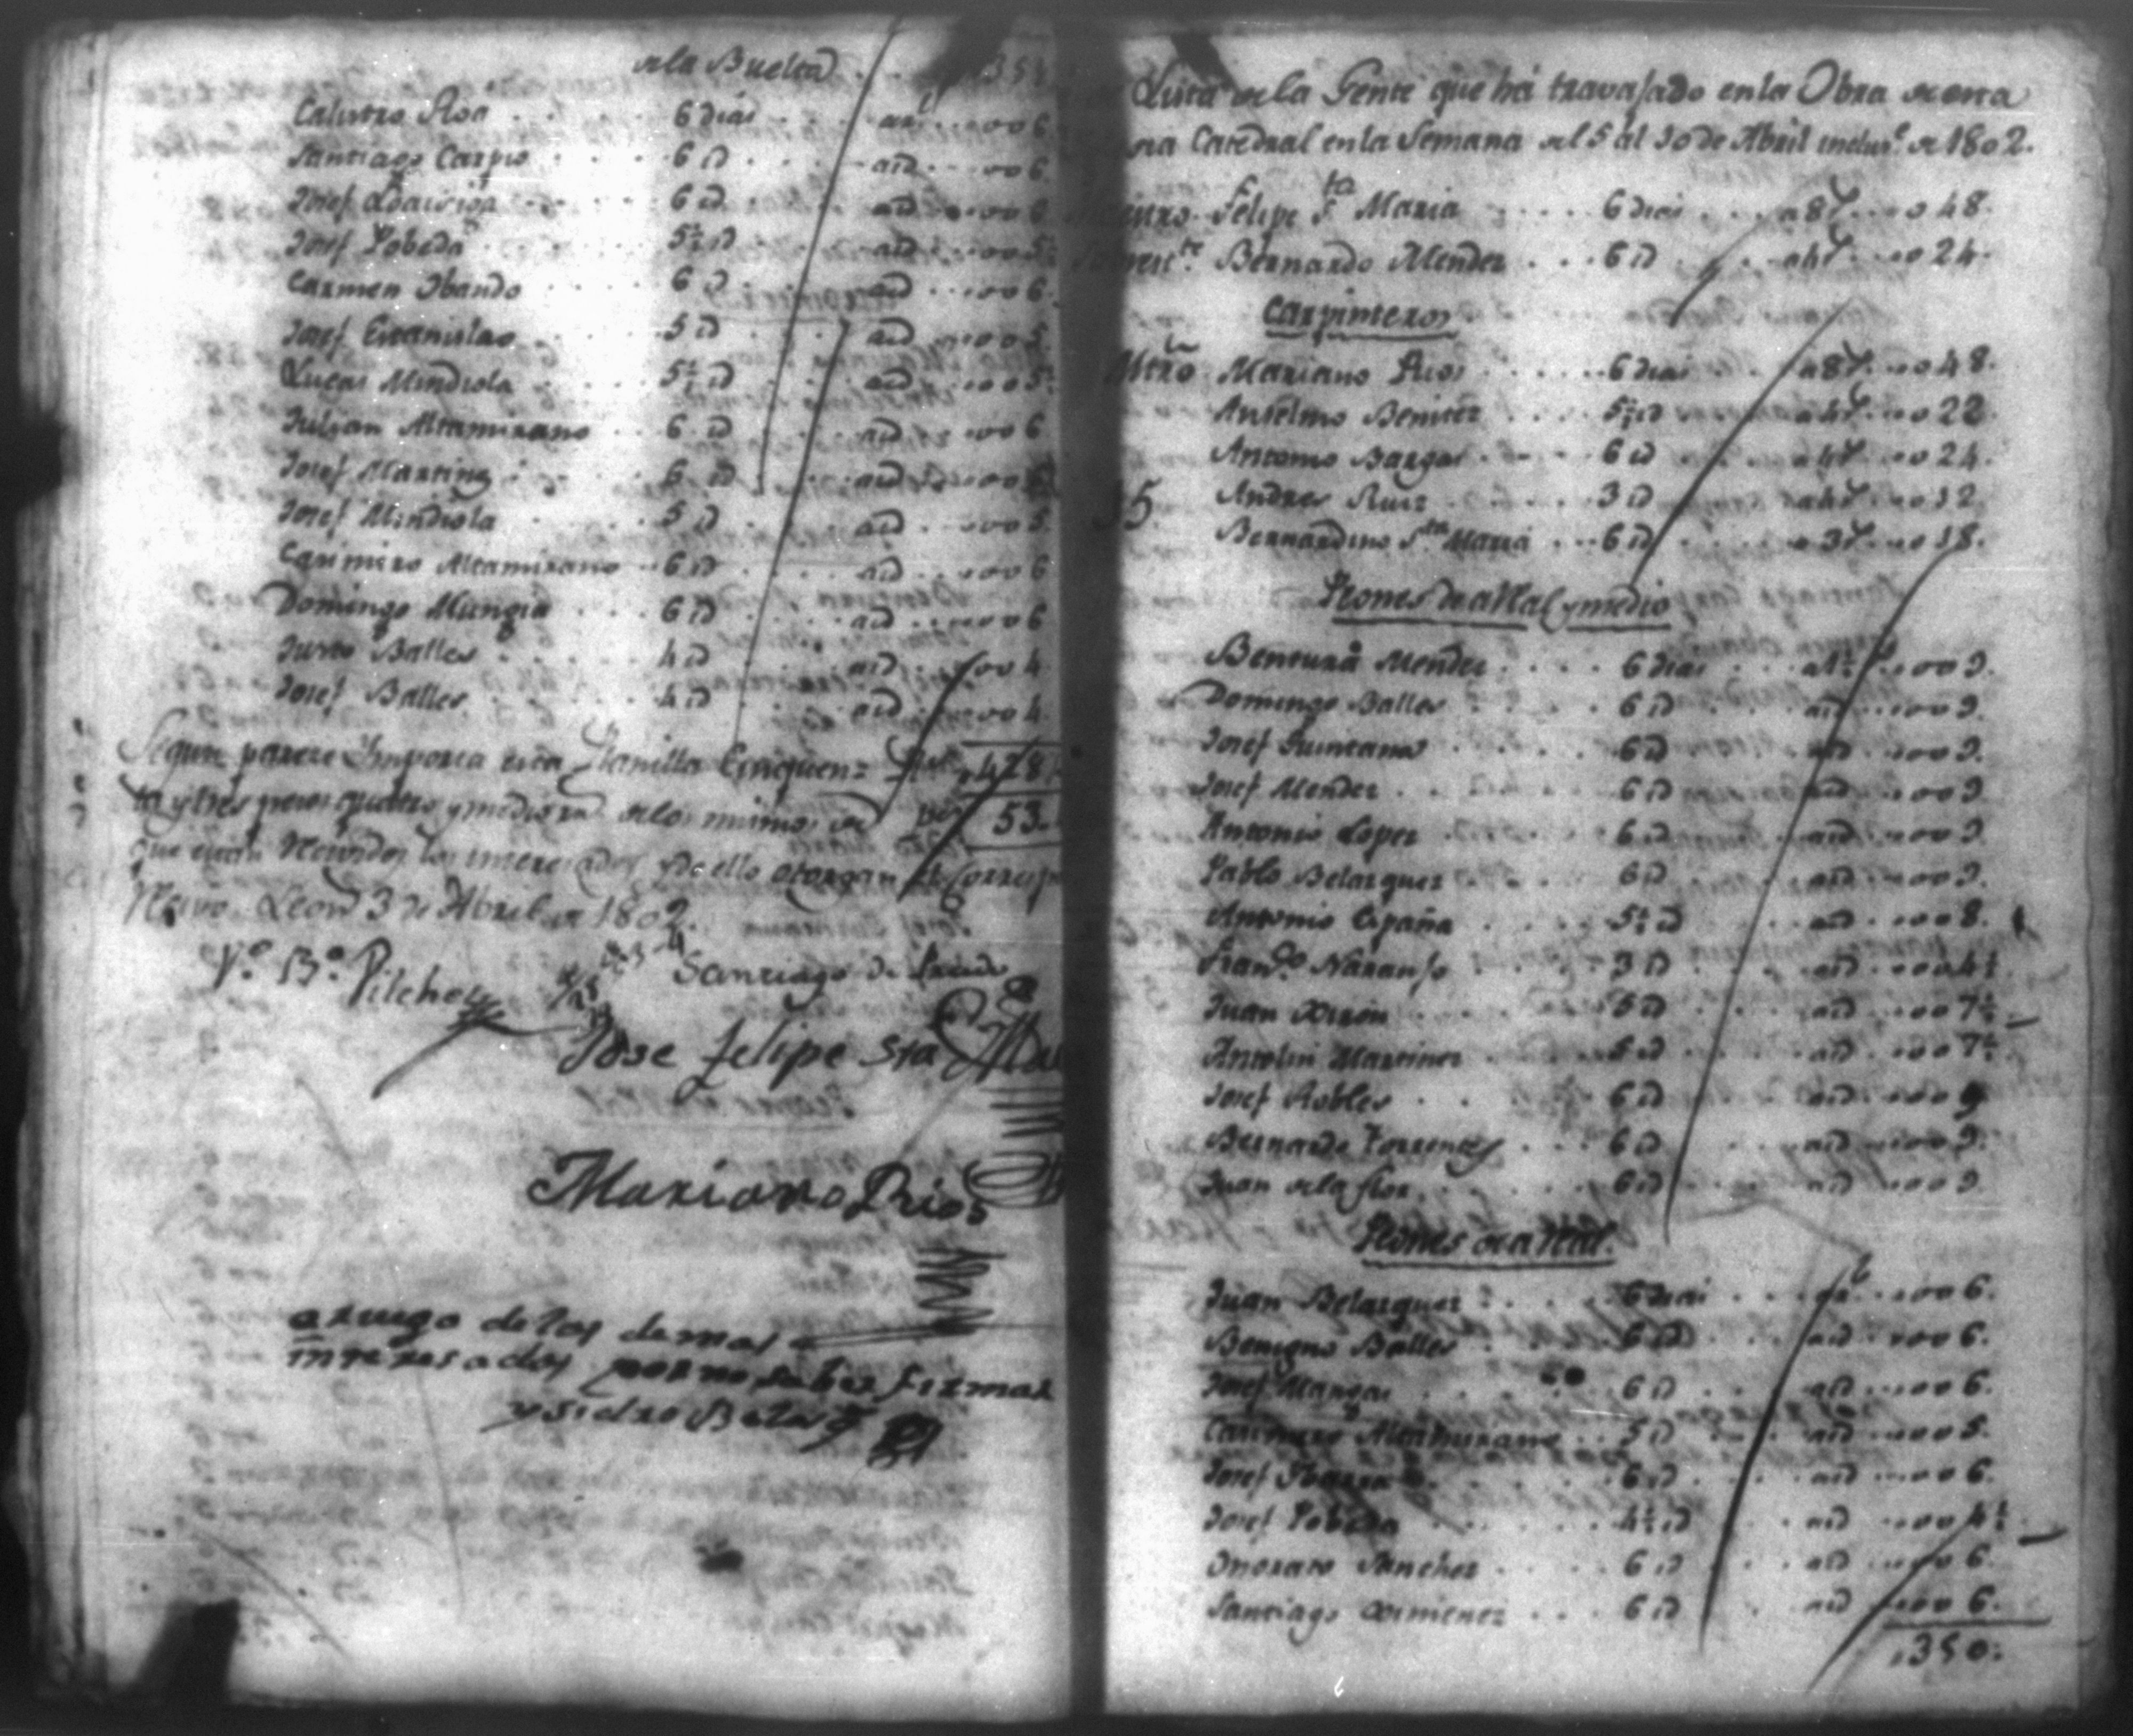 de la Buelta . . . 351
Calistro Roa . . . 6 dias . . . a 1 r . . . 006
Santiago Carpio . . . 6 id . . . aid . . . 006
Josef . . . 6 id . . . aid . . . 006
Josef Pobeda . . . 5½ id . . . aid . . . 005½
Carmen Obando . . . 6 id . . . aid . . . 006
Josef Estanislao . . . 5 id . . . aid . . . 005
Lucas Mindiola . . . 5½ id . . . aid . . . 005½
Julian Altamirano . . . 6 id . . . aid . . . 006
Josef Martinez . . . 6 id . . . aid . . . 006
Josef Mindiola . . . 5 id . . . aid . . . 005
Casimiro Altamirano . . . 6 id . . . aid . . . 006
Domingo Mungia . . . 6 id . . . aid . . . 006
Justo Balles . . . 4 id . . . aid . . . 004
Josef Balles . . . 4 id . . . aid . . . 004
Segun parece Importa esta Planilla Cinquen- 428
ta y tres pesos quatro y medio rs. de los mismos de 53.
que estan los interesados y de ello otorgan el Corresp
Nuevo. Leon 3 de Abril de 1802.
Vo. Bo. Pilchez
Santiago de
Jose felipe Sta Ma
Mariano Rios
a ruego de los demas
interesados por no saber firmar
ysidro Belasqz
Lista de la Gente que há travajado en la Obra de esta
Sta Catedral en la Semana del 5 al 10 de Abril inclus.e de 1802.
Maestro Felipe S.ta Maria . . . 6 dias . . . a 8 r . . . 048.
Bernardo Mendez . . . 6 id . . . a 4 r . . . 024.
Carpinteros
Mtro Mariano Rios . . . 6 dias . . . a 8 r . . . 048.
Anselmo Benites . . . 5½ id . . . a 4 r . . . 022
Antonio Bargas . . . 6 id . . . a 4 r . . . 024.
15 Andres Ruiz . . . 3 id . . . a 4 r . . . 012.
Bernardino S.ta Maria . . . 6 id . . . a 3 r . . . 018.
Peones de a Real y medio
Bentura Mendez . . . 6 dias . . . a 1½ r . . . 009.
Domingo Balles . . . 6 id . . . aid . . . 009.
Josef Quintana . . . 6 id . . . aid . . . 009.
Josef Mendez . . . 6 id . . . aid . . . 009
Antonio Lopez . . . 6 id . . . aid . . . 009.
Pablo Belazquez . . . 6 id . . . aid . . . 009.
Antonio España . . . 5½ id . . . aid . . . 008.
Fran.co Naranjo . . . 3 id . . . aid . . . 004½
Juan Xiron . . . 5 id . . . aid . . . 007½
Antolin Martinez . . . 5 id . . . aid . . . 007½
Josef Robles . . . 6 id . . . aid . . . 009
Bernardo Torrentes . . . 6 id . . . aid . . . 009.
Juan de la flor . . . 6 id . . . aid . . . 009.
Peones de a Real.
Juan Belazquez . . . 6 dias . . . a 1 r . . . 006.
Benigno Balles . . . 6 id . . . aid . . . 006.
Josef Mangas . . . 6 id . . . aid . . . 006.
Casimiro Altamirano . . . 5 id . . . aid . . . 005.
Josef Ibarra . . . 6 id . . . aid . . . 006.
Josef Pobeda . . . 4½ id . . . aid . . . 004½
Onorato Sanchez . . . 6 id . . . aid . . . 006.
Santiago Ximenez . . . 6 id . . . aid . . . 006.
350.